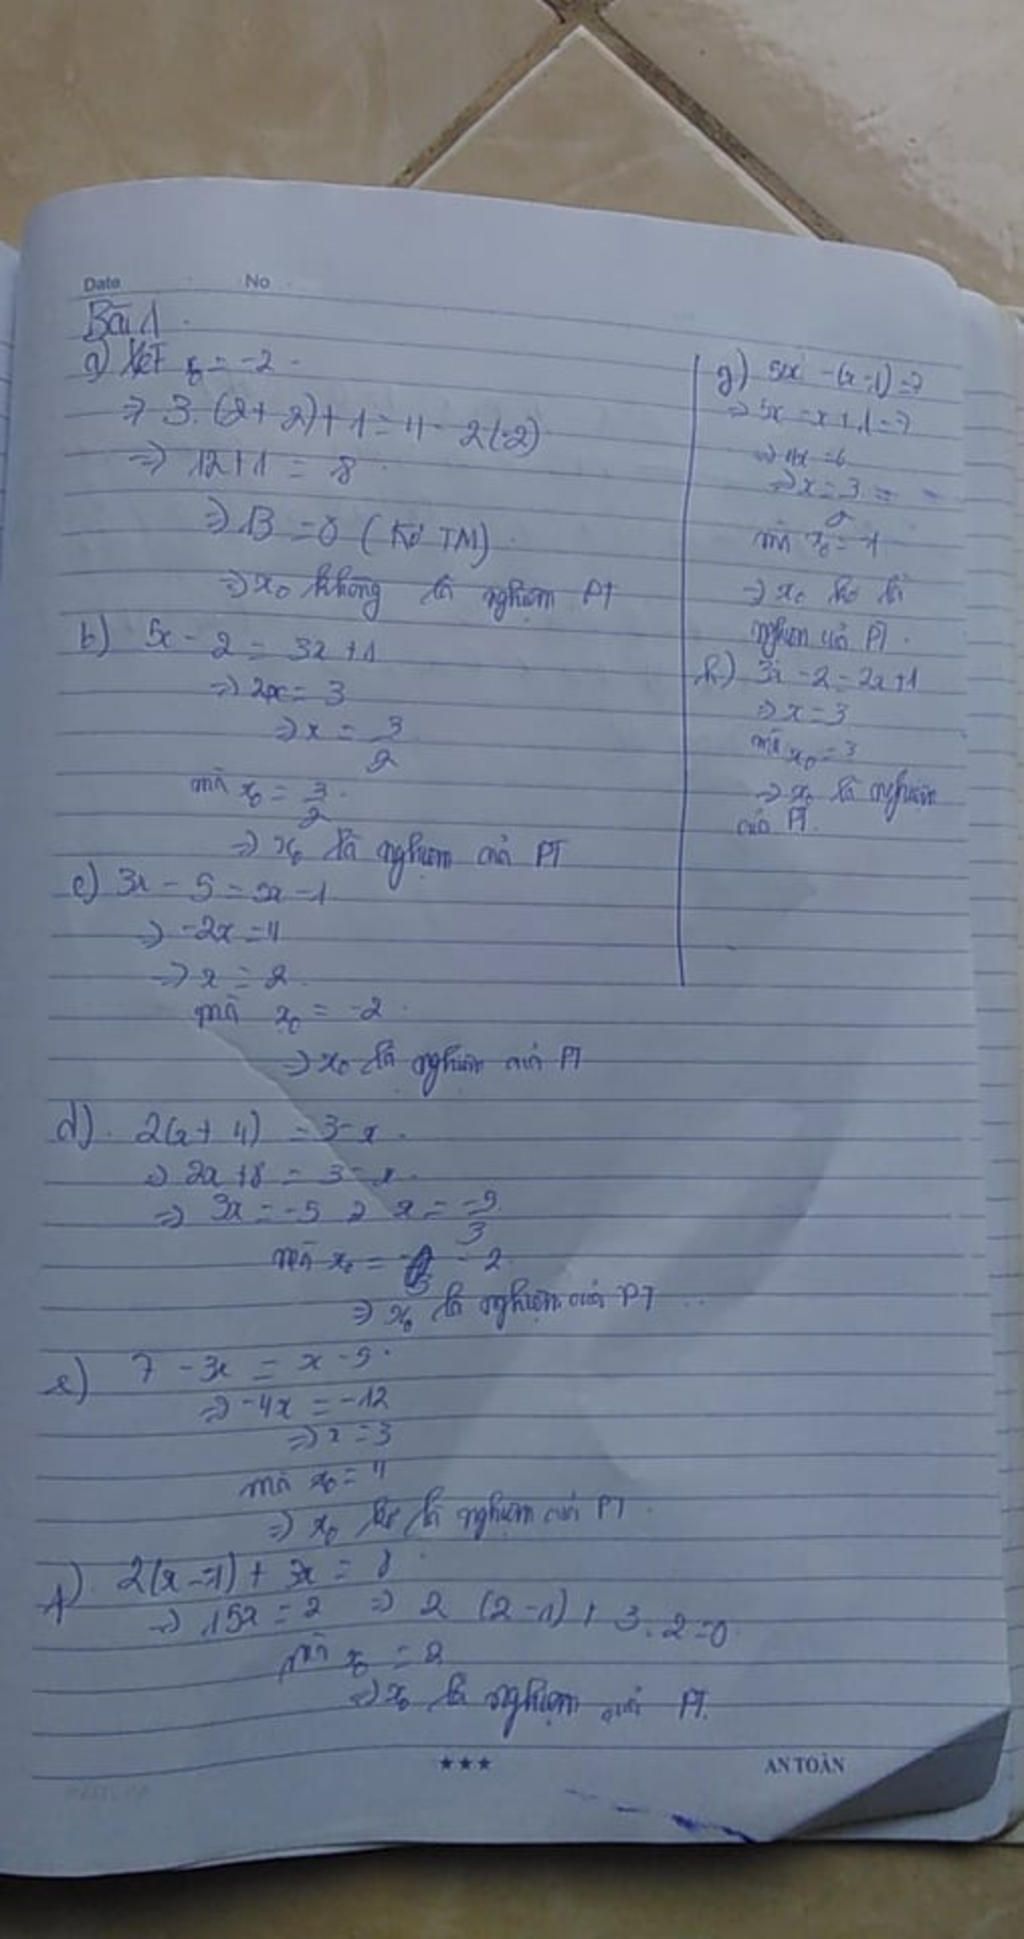 Date No
Bài 1
a) Xét x₀ = -2
=> 3.(2+2)+1 = 4-2(-2)
=> 12+1 = 8
=> 13 = 8 (Ko TM)
=> x₀ không là nghiệm PT
b) 5x - 2 = 3x+1
=> 2x = 3
=> x = 3/2
mà x₀ = 3/2
=> x₀ là nghiệm của PT
c) 3x - 5 = 5x - 1
=> -2x = 4
=> x = 2
mà x₀ = -2
=> x₀ là nghiệm của PT
d) 2(x+4) = 3-x
=> 2x+8 = 3-x
=> 3x = -5 => x = -5/3
mà x₀ = -2
=> x₀ là nghiệm của PT
e) 7 - 3x = x - 5
=> -4x = -12
=> x = 3
mà x₀ = 4
=> x₀ ko là nghiệm của PT
f) 2(x-1) + 3x = 8
=> 15x = 2 => 2 (2-1) + 3.2 = 0
mà x₀ = 2
=> x₀ là nghiệm của PT.
g) 5x - (x-1) = 7
=> 5x - x + 1 = 7
=> 4x = 6
=> x = 3/2
mà x₀ = -1
=> x₀ ko là
nghiệm của PT.
h) 3x - 2 = 2x+1
=> x = 3
mà x₀ = 3
=> x₀ là nghiệm
của PT.
★★★ AN TOÀN